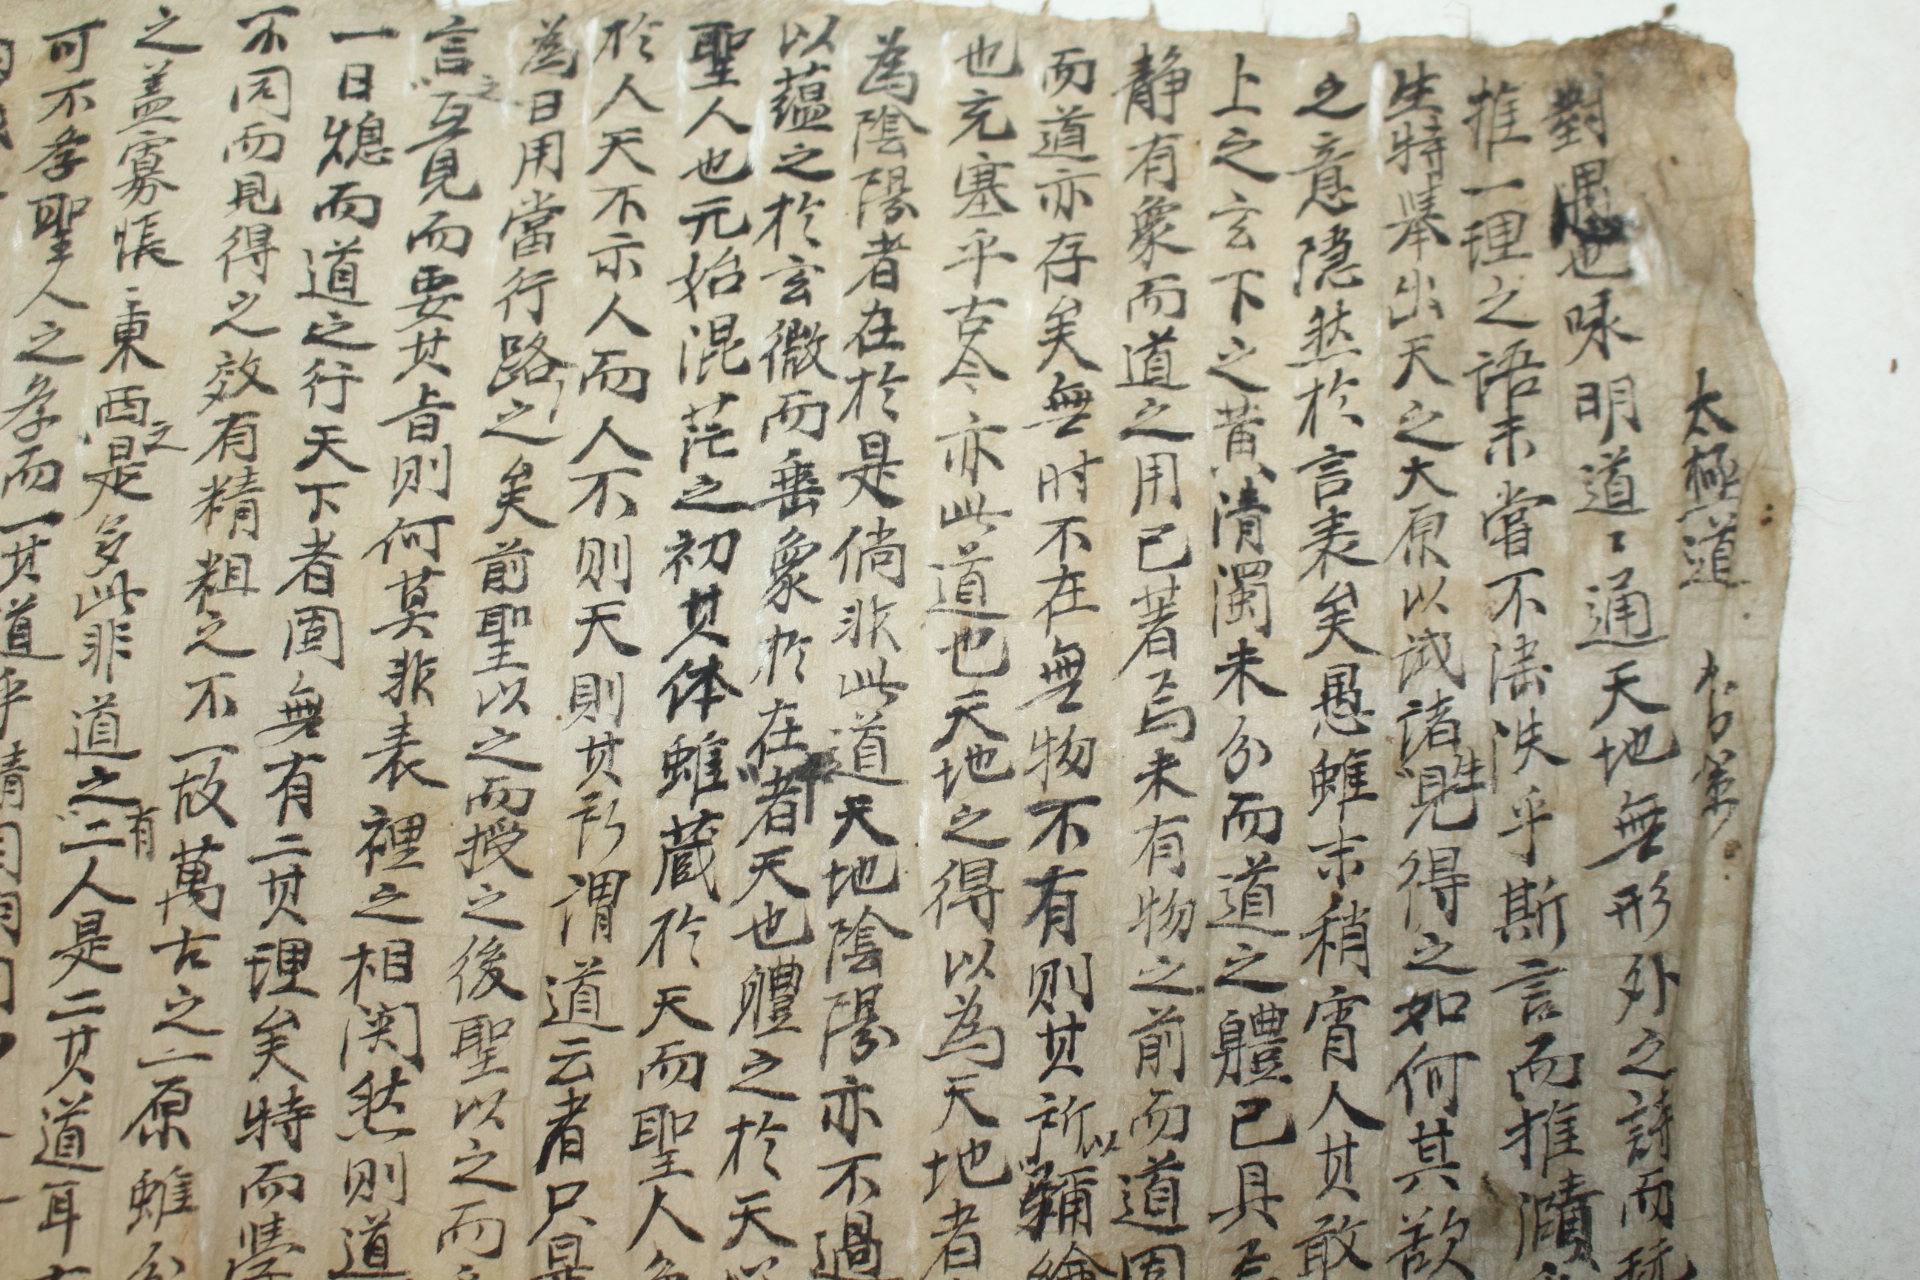 太極道
對愚也咏明道〻通天地無形外之詩而
推一理之語未嘗不濤泆乎斯言而推
生特擧出天之大原以試諸生覬得之如何其欤
之意隱然於言表矣愚雖末稍宵人其敢
上之玄下之黄淸濁未分而道之軆已具
静有象而道之用已著焉未有物之前而道固
而道亦存矣無时不在無物不有則其所以
也充塞乎古今亦此道也天地之得以為天地者
為陰陽者在於是倘非此道天地陰陽亦不過
以蘊之於玄微而垂象於在者天也軆之於天
聖人也元始混茫之初其体雖蔵於天而聖人
於人天不示人而人不則天則其所謂道云者只是
為日用當行路之矣前聖以之而授之後聖以之而
言之互見而要其旨則何莫非表裡之相関然則道
一日熄而道之行天下者固無有二其理矣特而
不因而見得之效有精粗之不一故萬古之一原雖分
之盖寡悵東西之是多此非道之有二人是二其道耳
可不孝聖人之孝而一其道乎